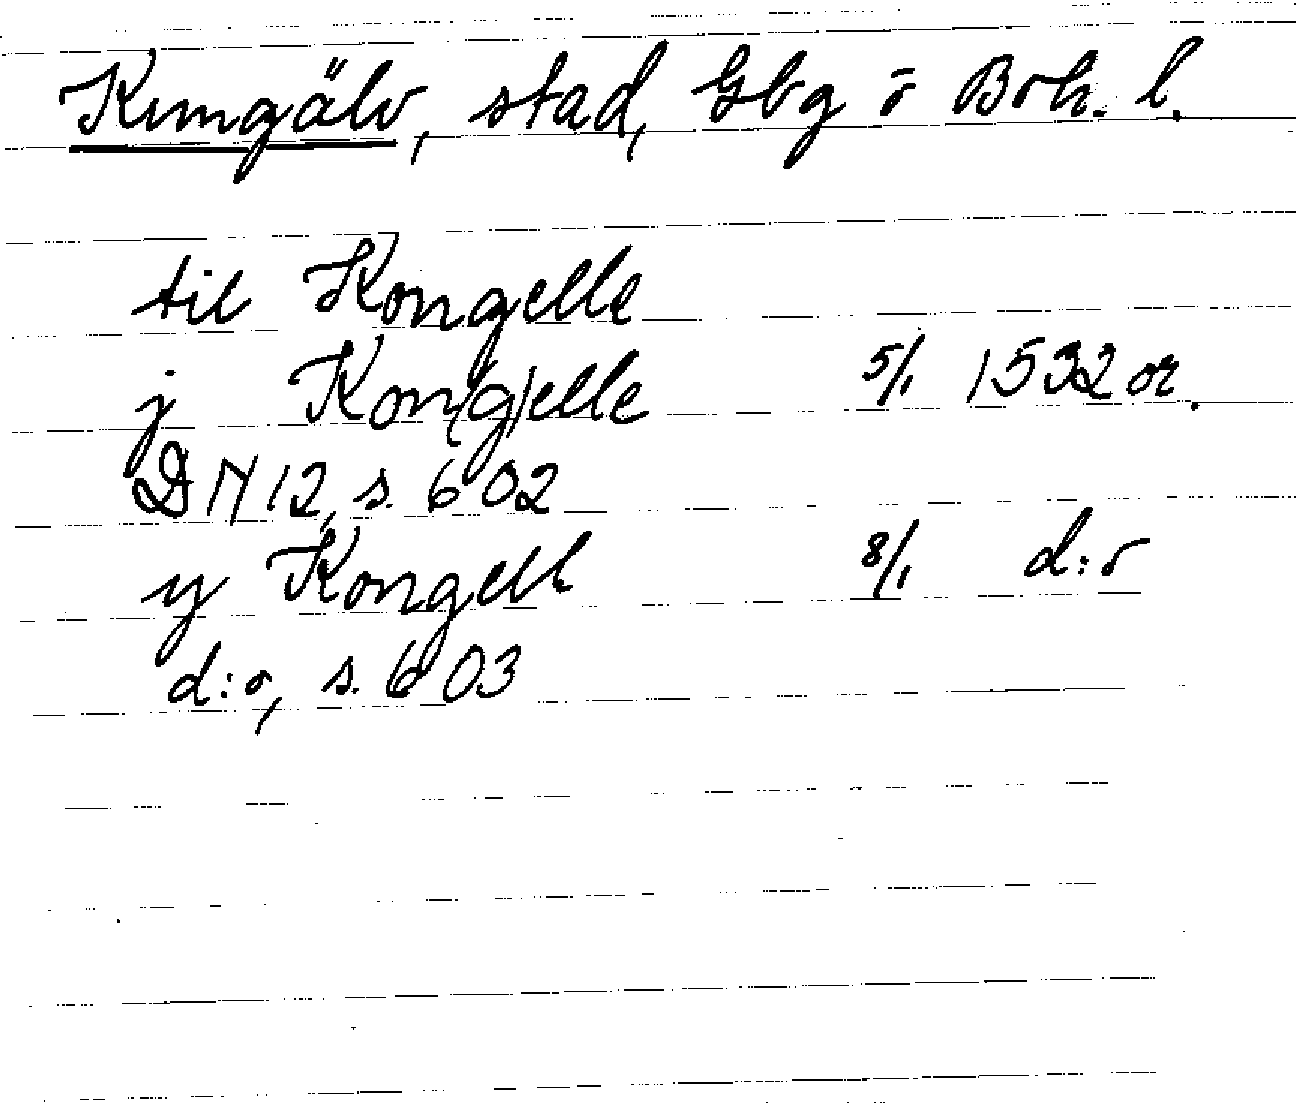 Kungälv, stad, Gbg o Boh. l.
til Kongelle
j Kon(g)elle 5/1 1532 or.
DN 12, s. 602
y Kongell 8/1 d:o
d:o, s. 603